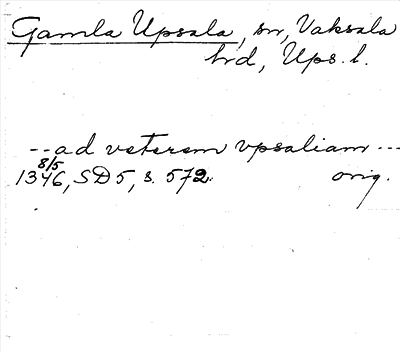 Gamla Upsala, sn, Vaksala
hrd, Ups. l.
--- ad veterem vpsaliam ---
8/5
1346, SD 5, s. 572. orig.